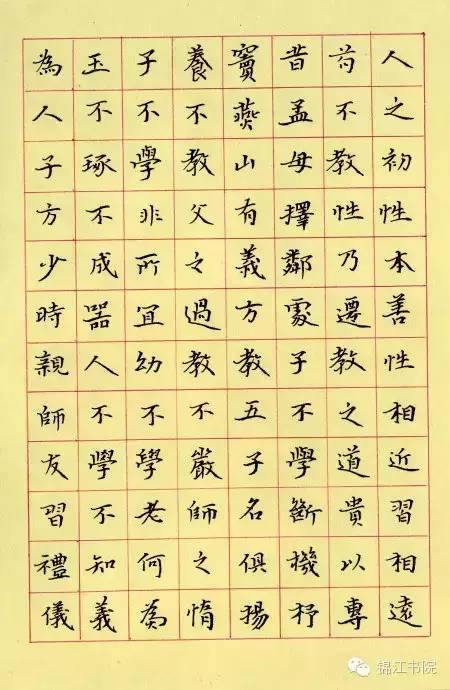 人之初性本善性相近習相遠
苟不教性乃遷教之道貴以專
昔孟母擇鄰處子不學斷機杼
竇燕山有義方教五子名俱揚
養不教父之過教不嚴師之惰
子不學非所宜幼不學老何為
玉不琢不成噐人不學不知義
為人子方少時親師友習禮儀
锦江书院